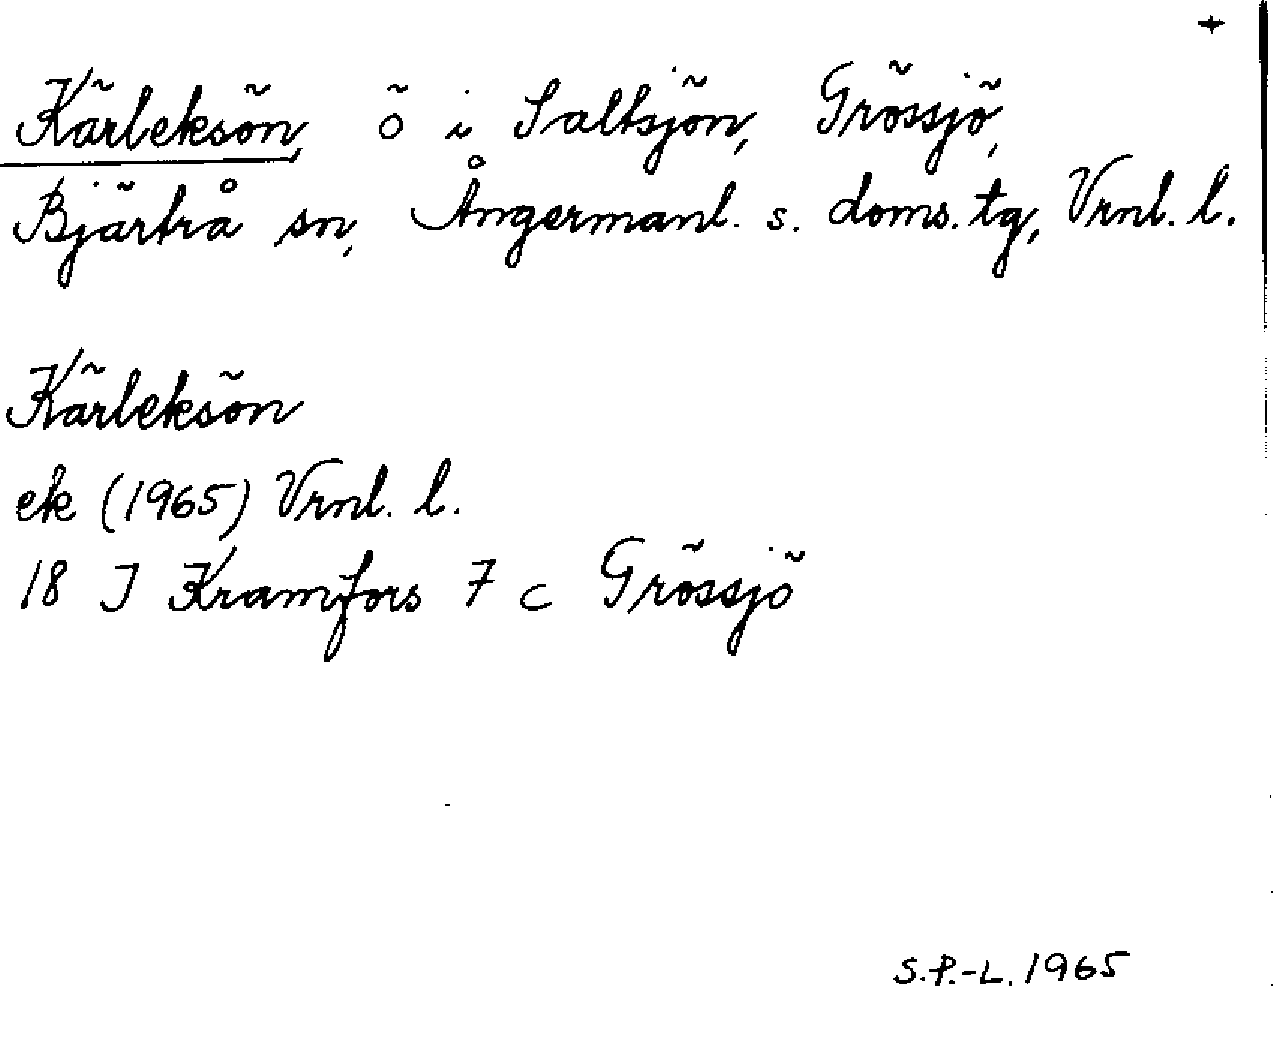 +
Kärleksön, ö i Saltsjön, Grössjö,
Bjärtrå sn, Ångermanl. s. doms. tg, Vrnl. l.
Kärleksön
ek (1965) Vrnl. l.
18 J Kramfors 7 c Grössjö
S.P.-L. 1965